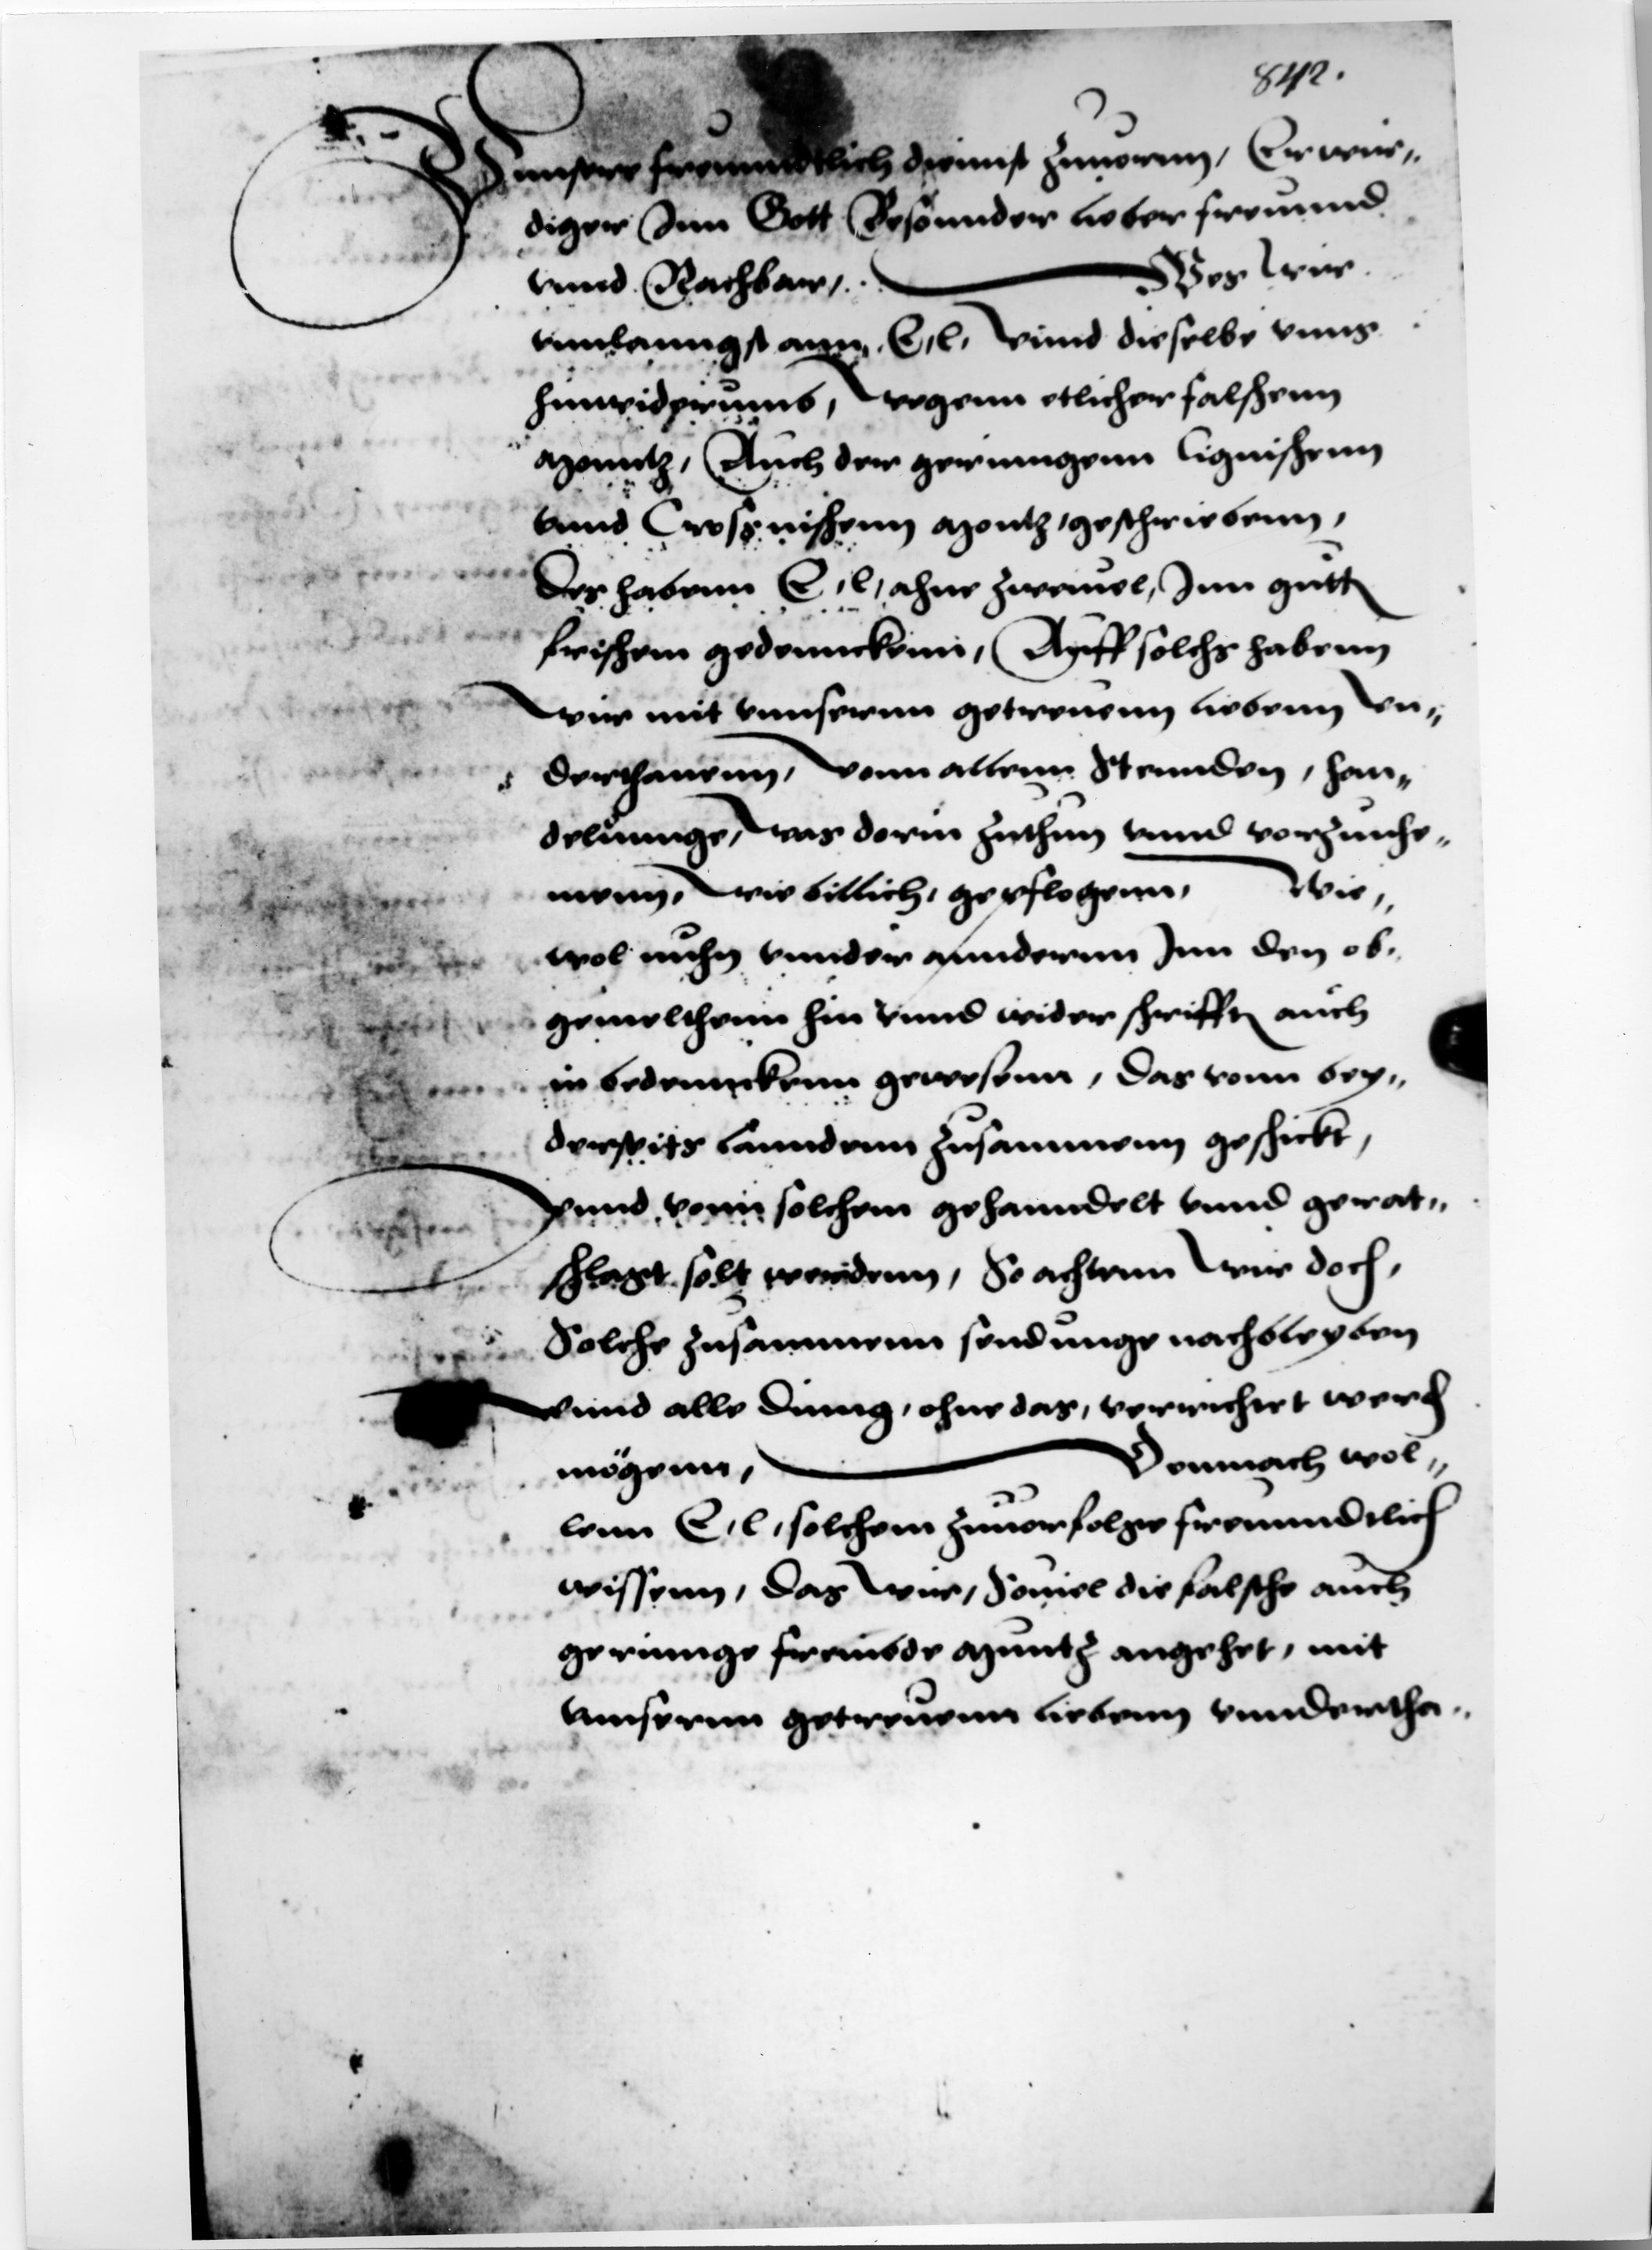 842.
Vnnsere freunndtlich dienst zuuornn, Erwir„
diger Inn Gott Besonnder lieber freunnd
vnnd Nachbaur, Wes wir
vnnlanngst ann E, l, vnnd dieselbe vnns
hinwiderumb, wegenn etlicher falschenn
Montz, Auch der geringenn Lignischenn
vnnd Crossnischenn Montz, geschriebenn,
Des habenn E, l, ahne zweiuel, Inn gutt
frischem gedennckenn, Auff solchs habenn
wir mit vnnsernn getreuenn liebenn vn„
derthanenn, vonn allenn Stennden, han„
delunnge, was dorin zuthun vnnd vorzunhe„
menn, wie billich, gepflogenn, Wie„
wol nuhn vnnder annderm Inn den ob„
gemelthenn hin vnnd wider schrifften auch
in bedennckenn gewesenn, das vonn bey„
derseits lanndenn zusammenn geschickt,
vnnd vonn solchem gehanndelt vnnd gerat„
schlagt solt werdenn, So achtenn wir doch,
Solche zusammenn sendunge nachbleyben
vnnd alle ding, ohne das, verrichtet werden
mögenn, Demnach wol„
lenn E, l, solchem zuuorfolge freunndtlich
wissenn, das wir, Souiel die falsche auch
geringe frembde Muntz angehet, mit
vnnsernn getreuenn liebenn vnndertha„